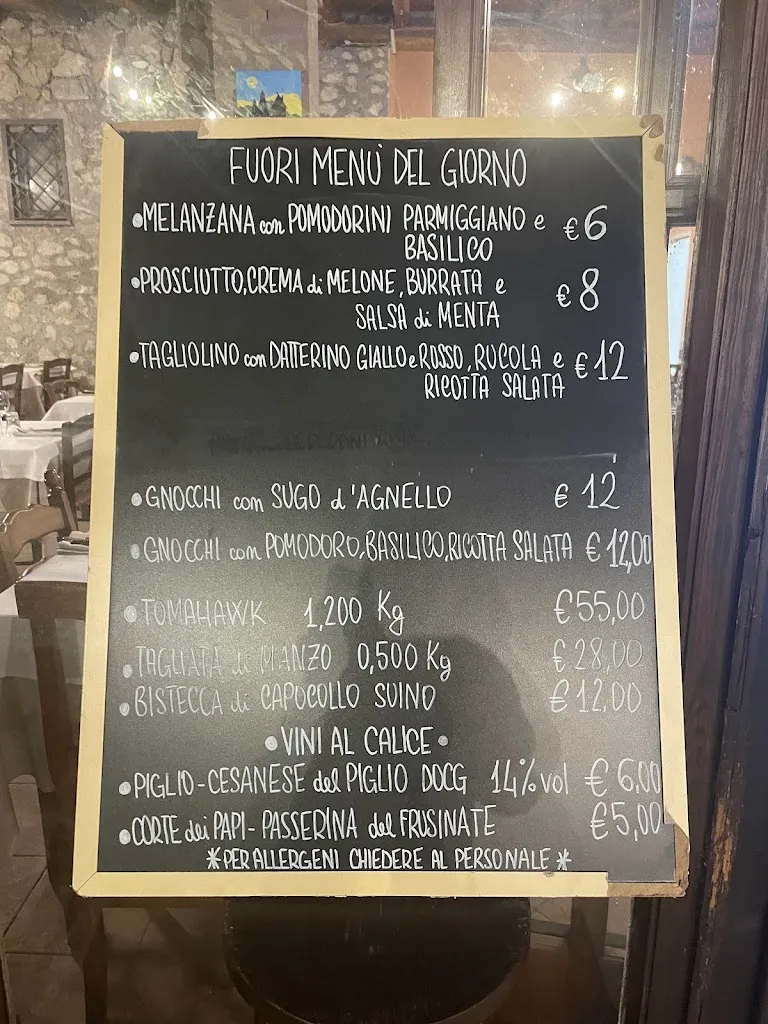 FUORI MENÙ DEL GIORNO
•MELANZANA con POMODORINI PARMIGGIANO e €6
BASILICO
•PROSCIUTTO, CREMA di MELONE, BURRATA e €8
SALSA di MENTA
•TAGLIOLINO con DATTERINO GIALLO e ROSSO, RUCOLA e €12
RICOTTA SALATA
•GNOCCHI con SUGO d'AGNELLO €12
•GNOCCHI con POMODORO, BASILICO, RICOTTA SALATA €12,00
•TOMAHAWK 1,200 Kg €55,00
•TAGLIATA di MANZO 0,500 Kg €28,00
•BISTECCA di CAPOCOLLO SUINO €12,00
•VINI AL CALICE•
•PIGLIO-CESANESE del PIGLIO DOCG 14%vol €6,00
•CORTE dei PAPI-PASSERINA del FRUSINATE €5,00
*PER ALLERGENI CHIEDERE AL PERSONALE*